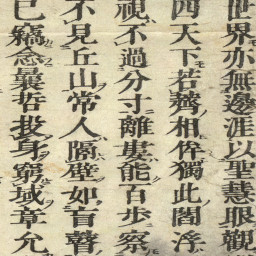 世界亦無邊涯以聖慧眼觀
四天下若薺相侔獨此閻浮
視不過分寸離婁能百步察
不見丘山常人隔壁如盲瞽
已念曩投身窮域章允